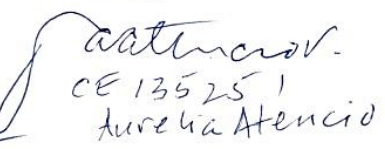 CE 135251
Aurelia Atencio